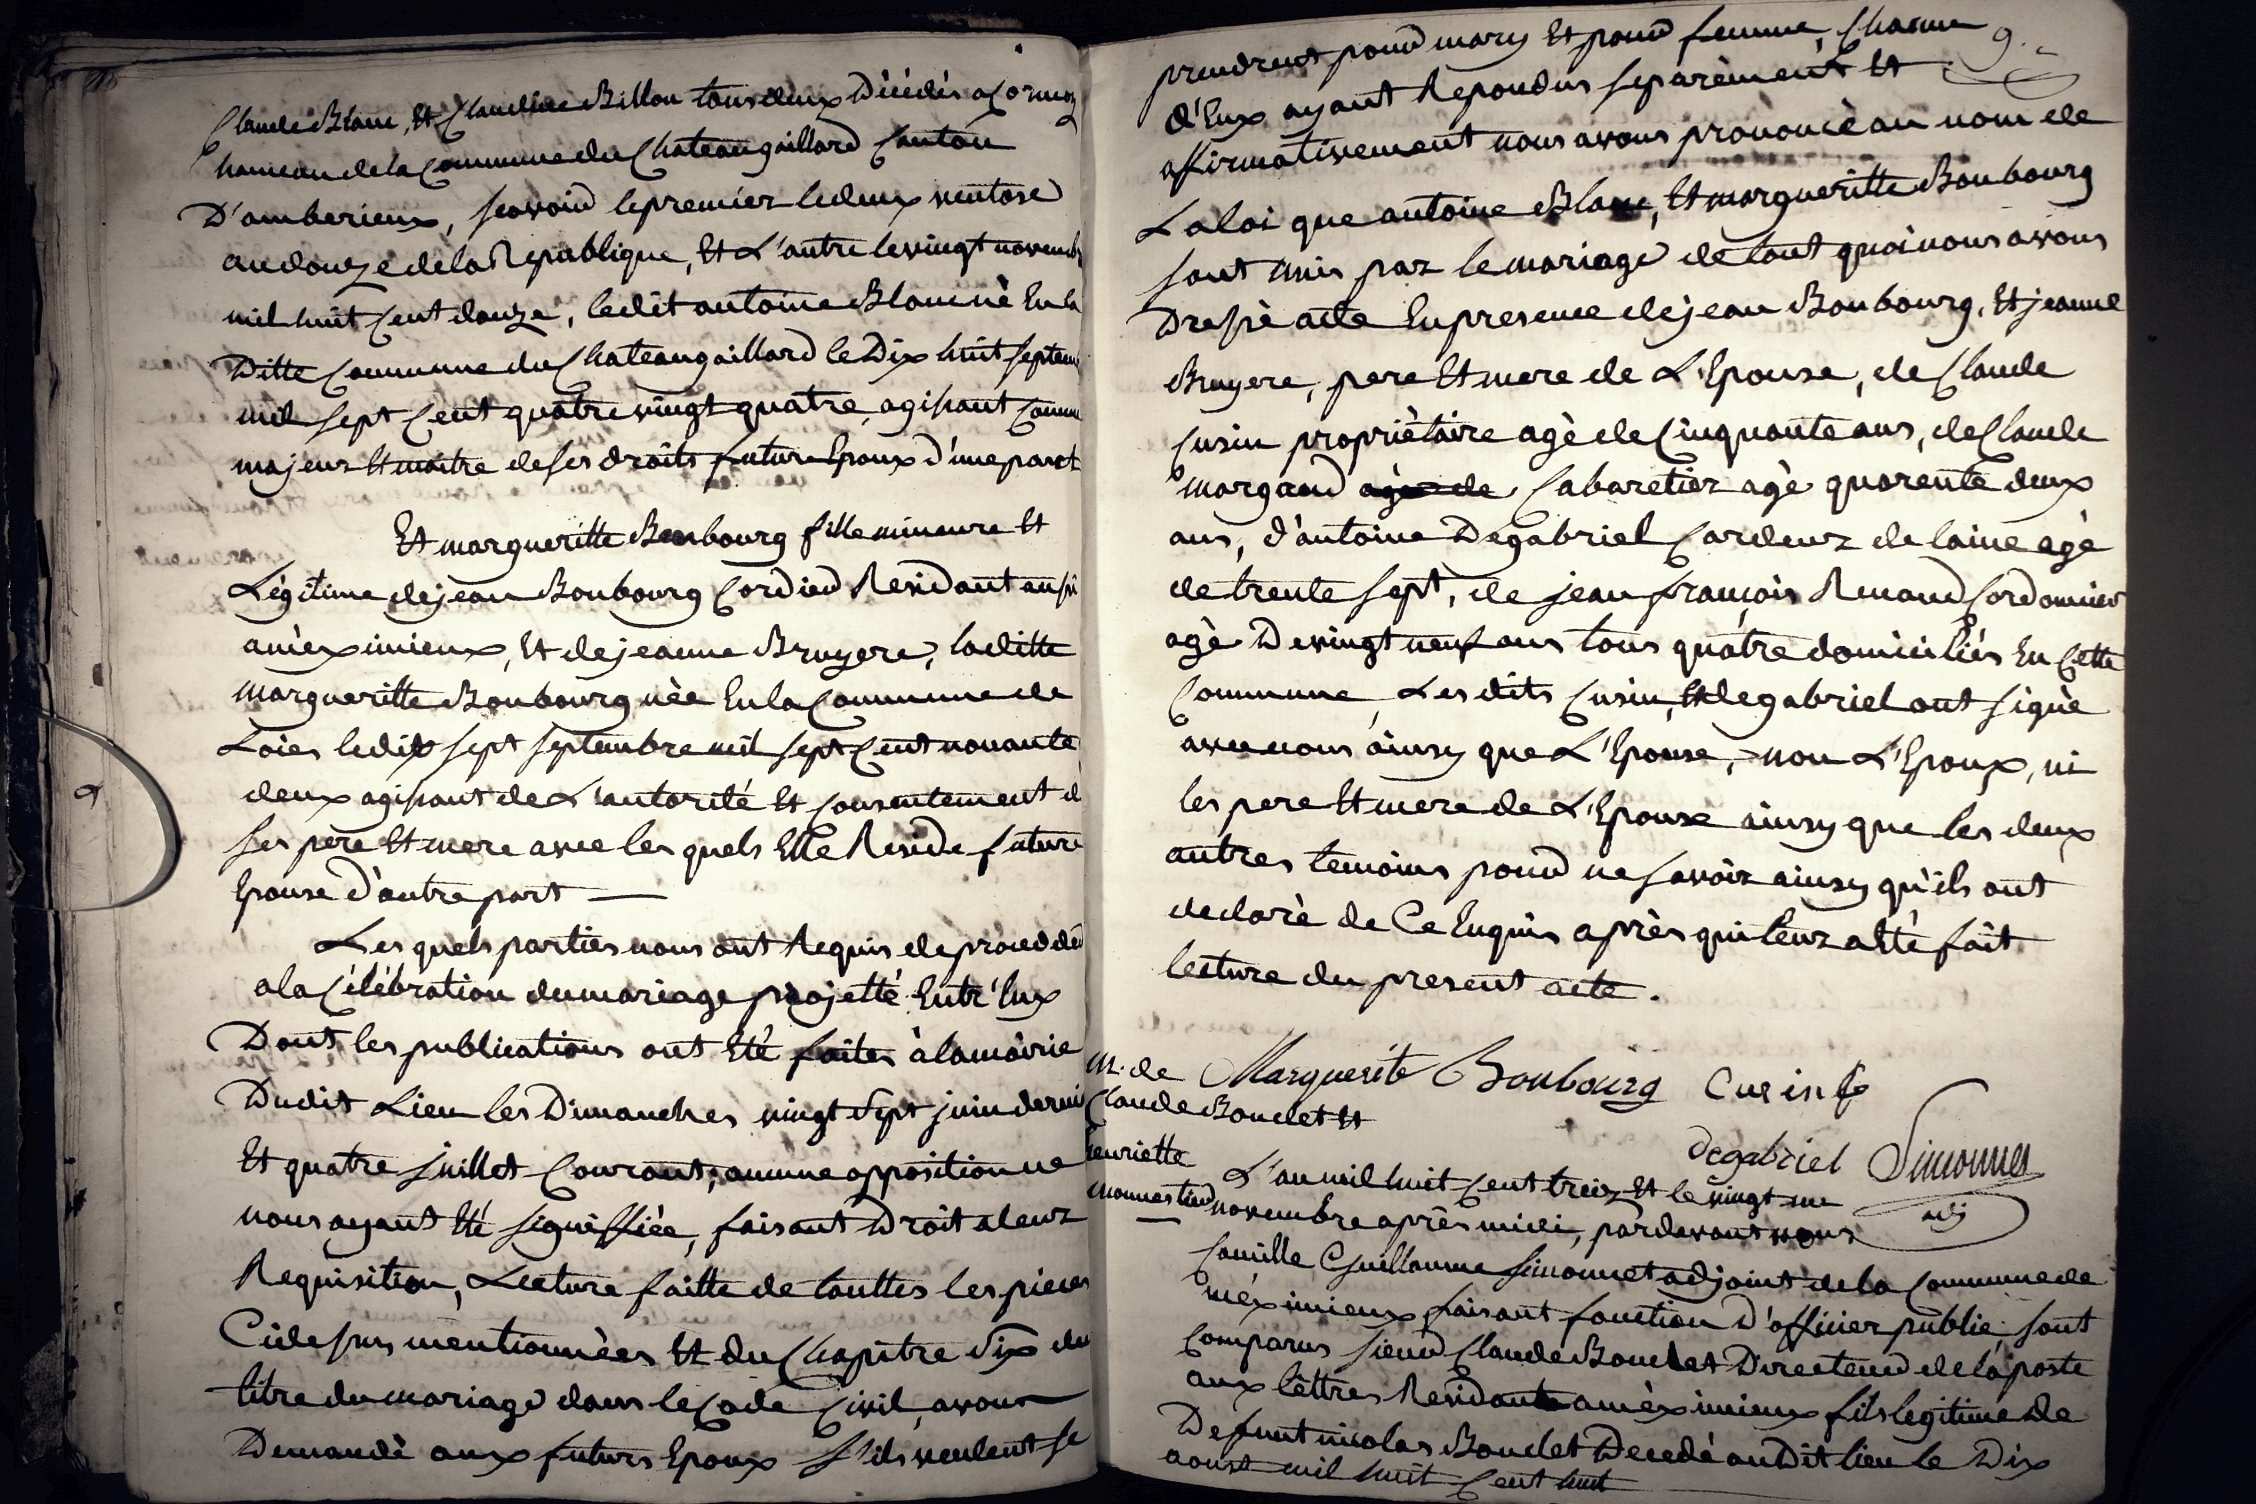 Claude Blanc, Et Claudine Billon tous deux Décédés a Cormoz
hameau de la Commune du Chateaugaillard Canton
D'amberieux, scavoir le premier le deux ventose
an douze de la Republique, Et L'autre le vingt novemb
mil huit Cent douze, le dit antoine Blanc né En la
Ditte Commune du Chateaugaillard le Dix huit septem
mil sept Cent quatre vingt quatre, agissant Comme
majeur Et maitre de ses droits futur Epoux d'une part
Et margueritte Boubourg fille mineure Et
Légitime de jean Boubourg Cordier Residant aussi
a méximieux, Et de jeanne Bruyere, la ditte
margueritte Boubourg née En la Commune de
Loies le dix sept septembre mil sept Cent nonante
deux agissant de L'autorité Et Consentement d
ses pere Et mere avec les quels Elle Reside future
Epouse d'autre part —
Les quels parties nous ont Requis de proceddér
a la Célébration du mariage projetté Entr'Eux
Dont les publications ont Eté faites à la mairie
Dudit Lieu les Dimanches vingt sept juin dernier
Et quatre juillet Courant, aucune opposition ne
nous ayant Eté signiffiée, faisant Droit a leur
Requisition, Lecture faitte de touttes les pieces
Ci dessus mentionnées Et du Chapitre Six du
titre du mariage dans le Code Civil, avons
Demandé aux futurs Epoux s'ils veulent se
prendrent pour mary Et pour femme, Chacun 9.
d'Eux ayant Repondus separément Et
affirmativement nous avons prononcé au nom de
La loi que antoine Blanc, Et margueritte Boubourg
sont unis par le mariage de tout quoi nous avons
Dressé acte En presence de jean Boubourg, Et jeanne
Bruyere, pere Et mere de L'Epouse, de Claude
Cusin propriétaire agé de Cinquante ans, de Claude
morgand agé de Cabaretier agé quarente deux
ans, d'antoine Degabriel Cardeur de laine agé
de trente sept, de jean françois Renaud Cordonnier
agé De vingt neuf ans tous quatre domiciliés En Cette
Commune, Les dits Cusin, Et degabriel ont signé
avec nous ainsy que L'Epouse, non L'Epoux, ni
les pere Et mere de L'Epouse ainsy que les deux
autres temoins pour ne savoir ainsy qu'ils ont
declaré de Ce Enquis après qui leur a Eté fait
lecture du present acte.
Marguerite Boubourg Cusin
degabriel Simonnet
adj
M. de
Claude Bouclet Et
henriette
monnestier
L'an mil huit Cent treiz Et le vingt un
novembre après midi, pardevant nous
Camille Guillaume Simonnet adjoint de la Commune de
méximieux faisant fonction D'officier public sont
Comparus sieur Claude Bouclet Directeur de la poste
aux lettres Residante a méximieux fils legitime de
Defunt nicolas Bouclet Decedé au Dit lieu le Dix
aoust mil huit Cent huit